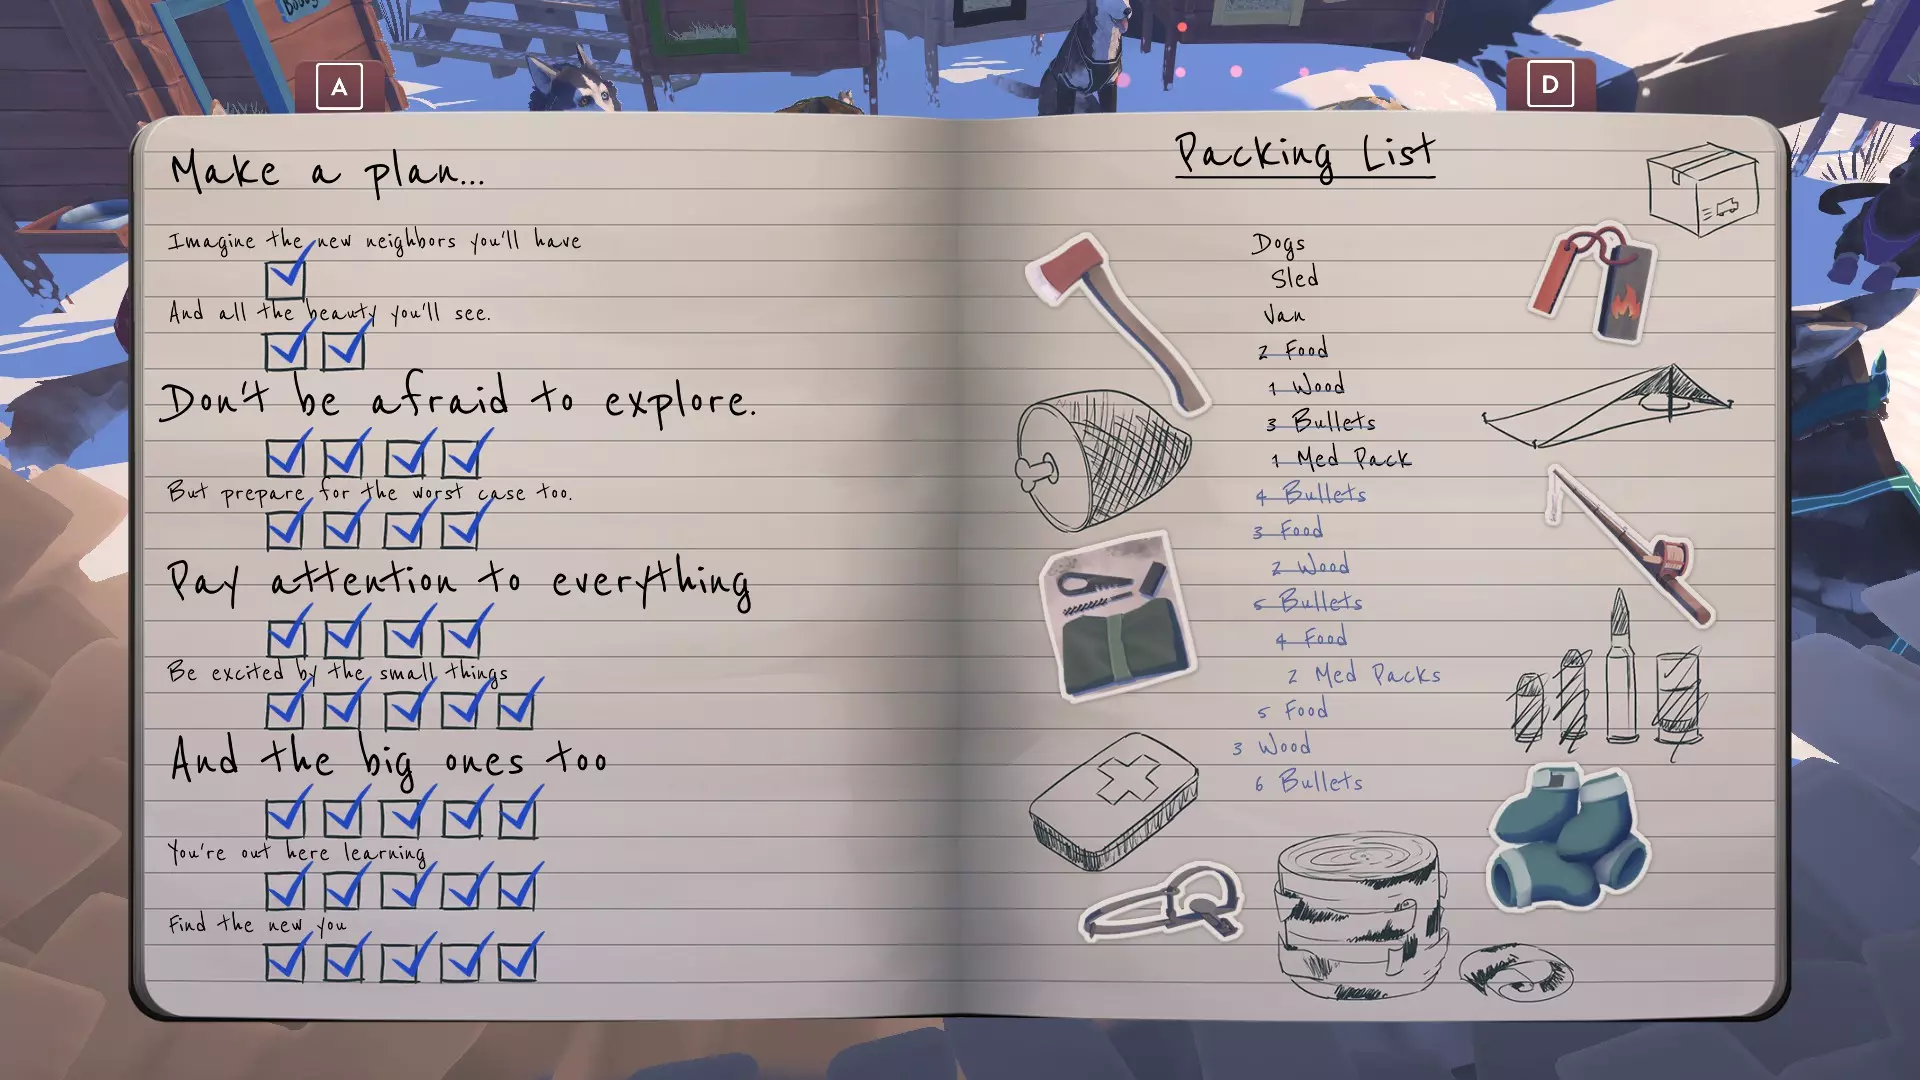 A
D
Make a plan...
Imagine the new neighbors you'll have
And all the beauty you'll see.
Don't be afraid to explore.
But prepare for the worst case too.
Pay attention to everything
Be excited by the small things
And the big ones too
You're out here learning
Find the new you
Packing List
Dogs
Sled
Van
2 Food
1 Wood
3 Bullets
1 Med Pack
4 Bullets
3 Food
2 Wood
5 Bullets
4 Food
2 Med Packs
5 Food
3 Wood
6 Bullets